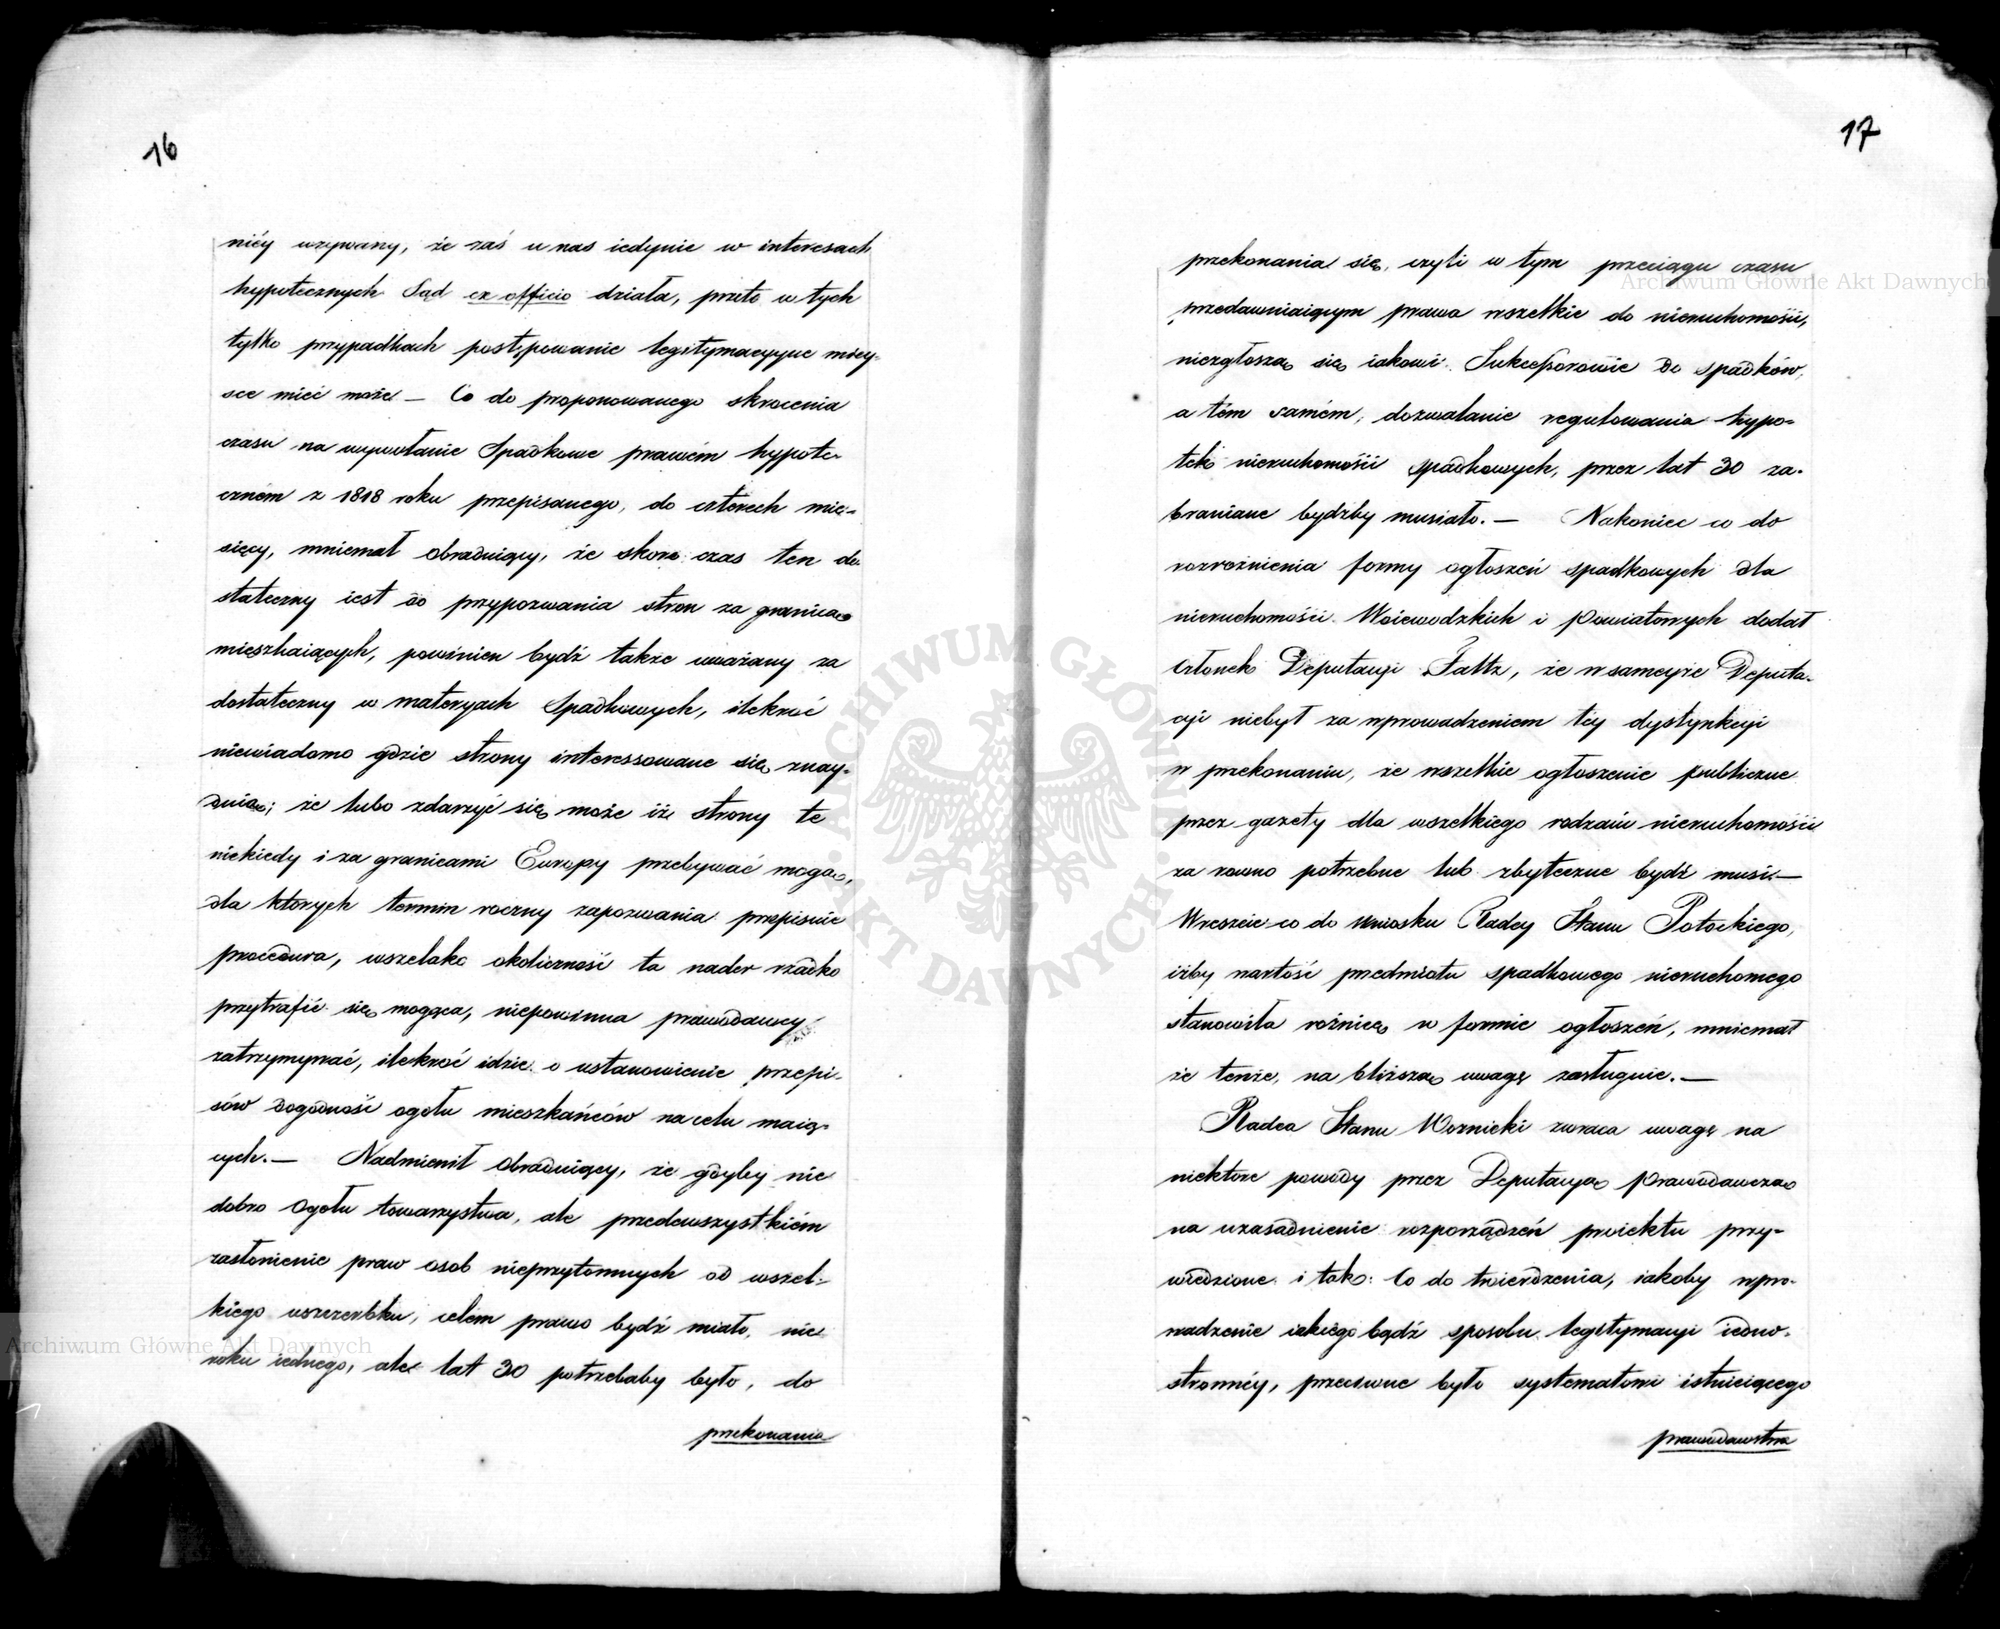 16
niéy uzywany, że zaś u nas iedynie w interesach
hypotecznych Sąd ex officio działa, przeto w tych
tylko przypadkach postępowanie legitymacyyne miey-
sce mieć może — Co do proponowanego skrocenia
czasu na wywołanie Spadkowe prawem hypote-
cznem z 1818 roku przepisanego, do czterech mie-
sięcy, mniemał obraduiący, że skoro czas ten do-
stateczny iest do przypozwania stron za granicą
mieszkaiących, powinien bydź także uważany za
dostateczny w materyach Spadkowych, ilekroć
niewiadomo gdzie strony interessowane się znay-
duią; że lubo zdarzyć się może iż strony te
niekiedy i za granicami Europy przebywać mogą,
dla ktorych termin roczny zapozwania przepisuie
procedura, wszelako okoliczność ta nader rzadko
przytrafić się mogąca, niepowinna prawodawcy
zatrzymywać, ilekroć idzie o ustanowienie przepi-
sów dogodność ogołu mieszkańców na celu maią-
cych. — Nadmienił Obraduiący, że gdyby nie
dobro Ogołu towarzystwa, ale przedewszystkiém
zasłonienie praw osob nieprzytomnych od wszel-
kiego uszczerbku, celem prawo bydź miało, nie
roku iednego, ale lat 30 potrzebaby było, do
przekonania
17
przekonania się, czyli w tym przeciągu czasu
przedawniaiącym prawa wszelkie do nieruchomości,
niezgłoszą się iakowi Sukcessorowie do spadków,
a tém samém, dozwalanie regulowania hypo-
tek nieruchomości spadkowych, przez lat 30 za-
braniane bydźby musiało. — Nakoniec co do
rozrożnienia formy ogłoszeń spadkowych dla
nieruchomości Woiewodzkich i Powiatowych dodał
Członek Deputacyi Faltz, że w sameyże Deputa-
cyi niebył za wprowadzeniem tey dystynkcyi
w przekonaniu, że wszelkie ogłoszenie publiczne
przez gazety dla wszelkiego rodzaiu nieruchomości
za rowno potrzebne lub zbyteczne bydź musi —
Wreszcie co do wniosku Radcy Stanu Potockiego,
iżby wartość przedmiotu spadkowego nieruchomego
stanowiła rożnicę w formie ogłoszeń, mniemał
że tenże, na bliższą uwagę zasługuie. —
Radca Stanu Woznicki zwraca uwagę na
niektore powody przez Deputacyą Prawodawczą
na uzasadnienie rozporządzeń proiektu przy-
wiedzione i tak: Co do twierdzenia, iakoby wpro-
wadzenie iakiego bądź sposobu legitymacyi iedno-
stronnéy, przeciwne było systematowi istnieiącego
prawodawstwa
Archiwum Główne Akt Dawnych
Archiwum Główne Akt Dawnych
ARCHIWUM GŁÓWNE AKT DAWNYCH